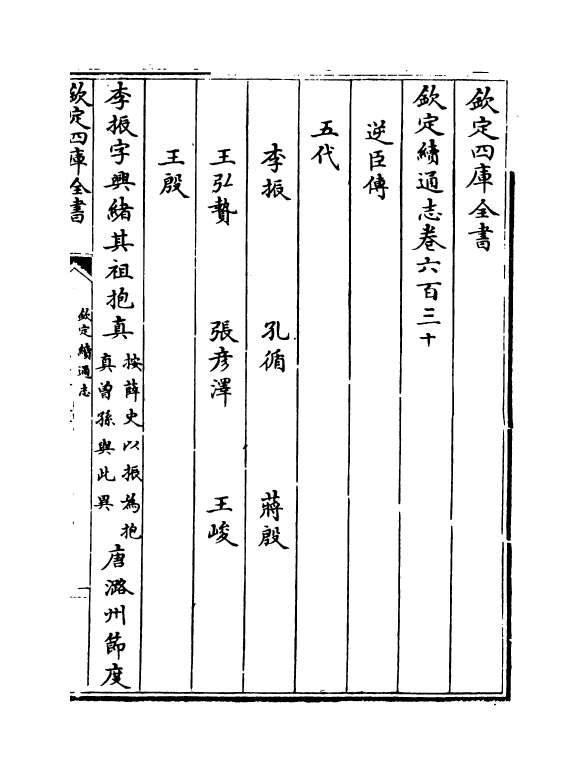 欽定四庫全書
欽定續通志卷六百三十
逆臣傳
五代
李振 孔循 蔣殷
王弘贄 張彦澤 王峻
王殷
李振字興緒其祖抱真按薛史以振為抱真曾孫與此異唐潞州節度
欽定四庫全書
欽定續通志